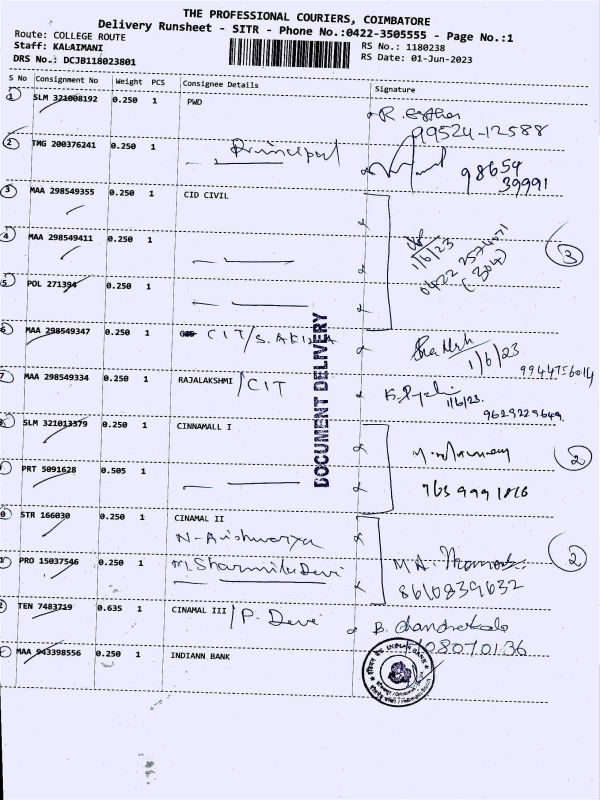 THE PROFESSIONAL COURIERS, COIMBATORE
Delivery Runsheet - SITR - Phone No.:0422-3505555 - Page No.:1
Route: COLLEGE ROUTE
Staff: KALAIMANI
DRS No.: DCJB118023801
RS No.: 1180238
RS Date: 01-Jun-2023
S No Consignment No Weight PCS Consignee Details Signature
1 SLM 321008192 0.250 1 PWD R. Esther
99524-12588
2 TMG 200376241 0.250 1 Principal 98654
39991
3 MAA 298549355 0.250 1 CID CIVIL
4 MAA 298549411 0.250 1 1/6/23 0422 2574071 (304) 3
5 POL 271394 0.250 1
6 MAA 298549347 0.250 1 CIT/S. AKILA 1/6/23
9944756014
7 MAA 298549334 0.250 1 RAJALAKSHMI /CIT 1/6/23.
9629229649.
SLM 321013379 0.250 1 CINNAMALL I 2
PRT 5091628 0.505 1 765 999 1816
STR 166030 0.250 1 CINAMAL II
N-Aishwarya
PRO 15037546 0.250 1 M. Sharmila Devi M A. 2
8610839632
TEN 7483719 0.635 1 CINAMAL III /P. Devi B. Chandrakala
MAA 943398556 0.250 1 INDIANN BANK
DOCUMENT DELIVERY
INDIAN BANK